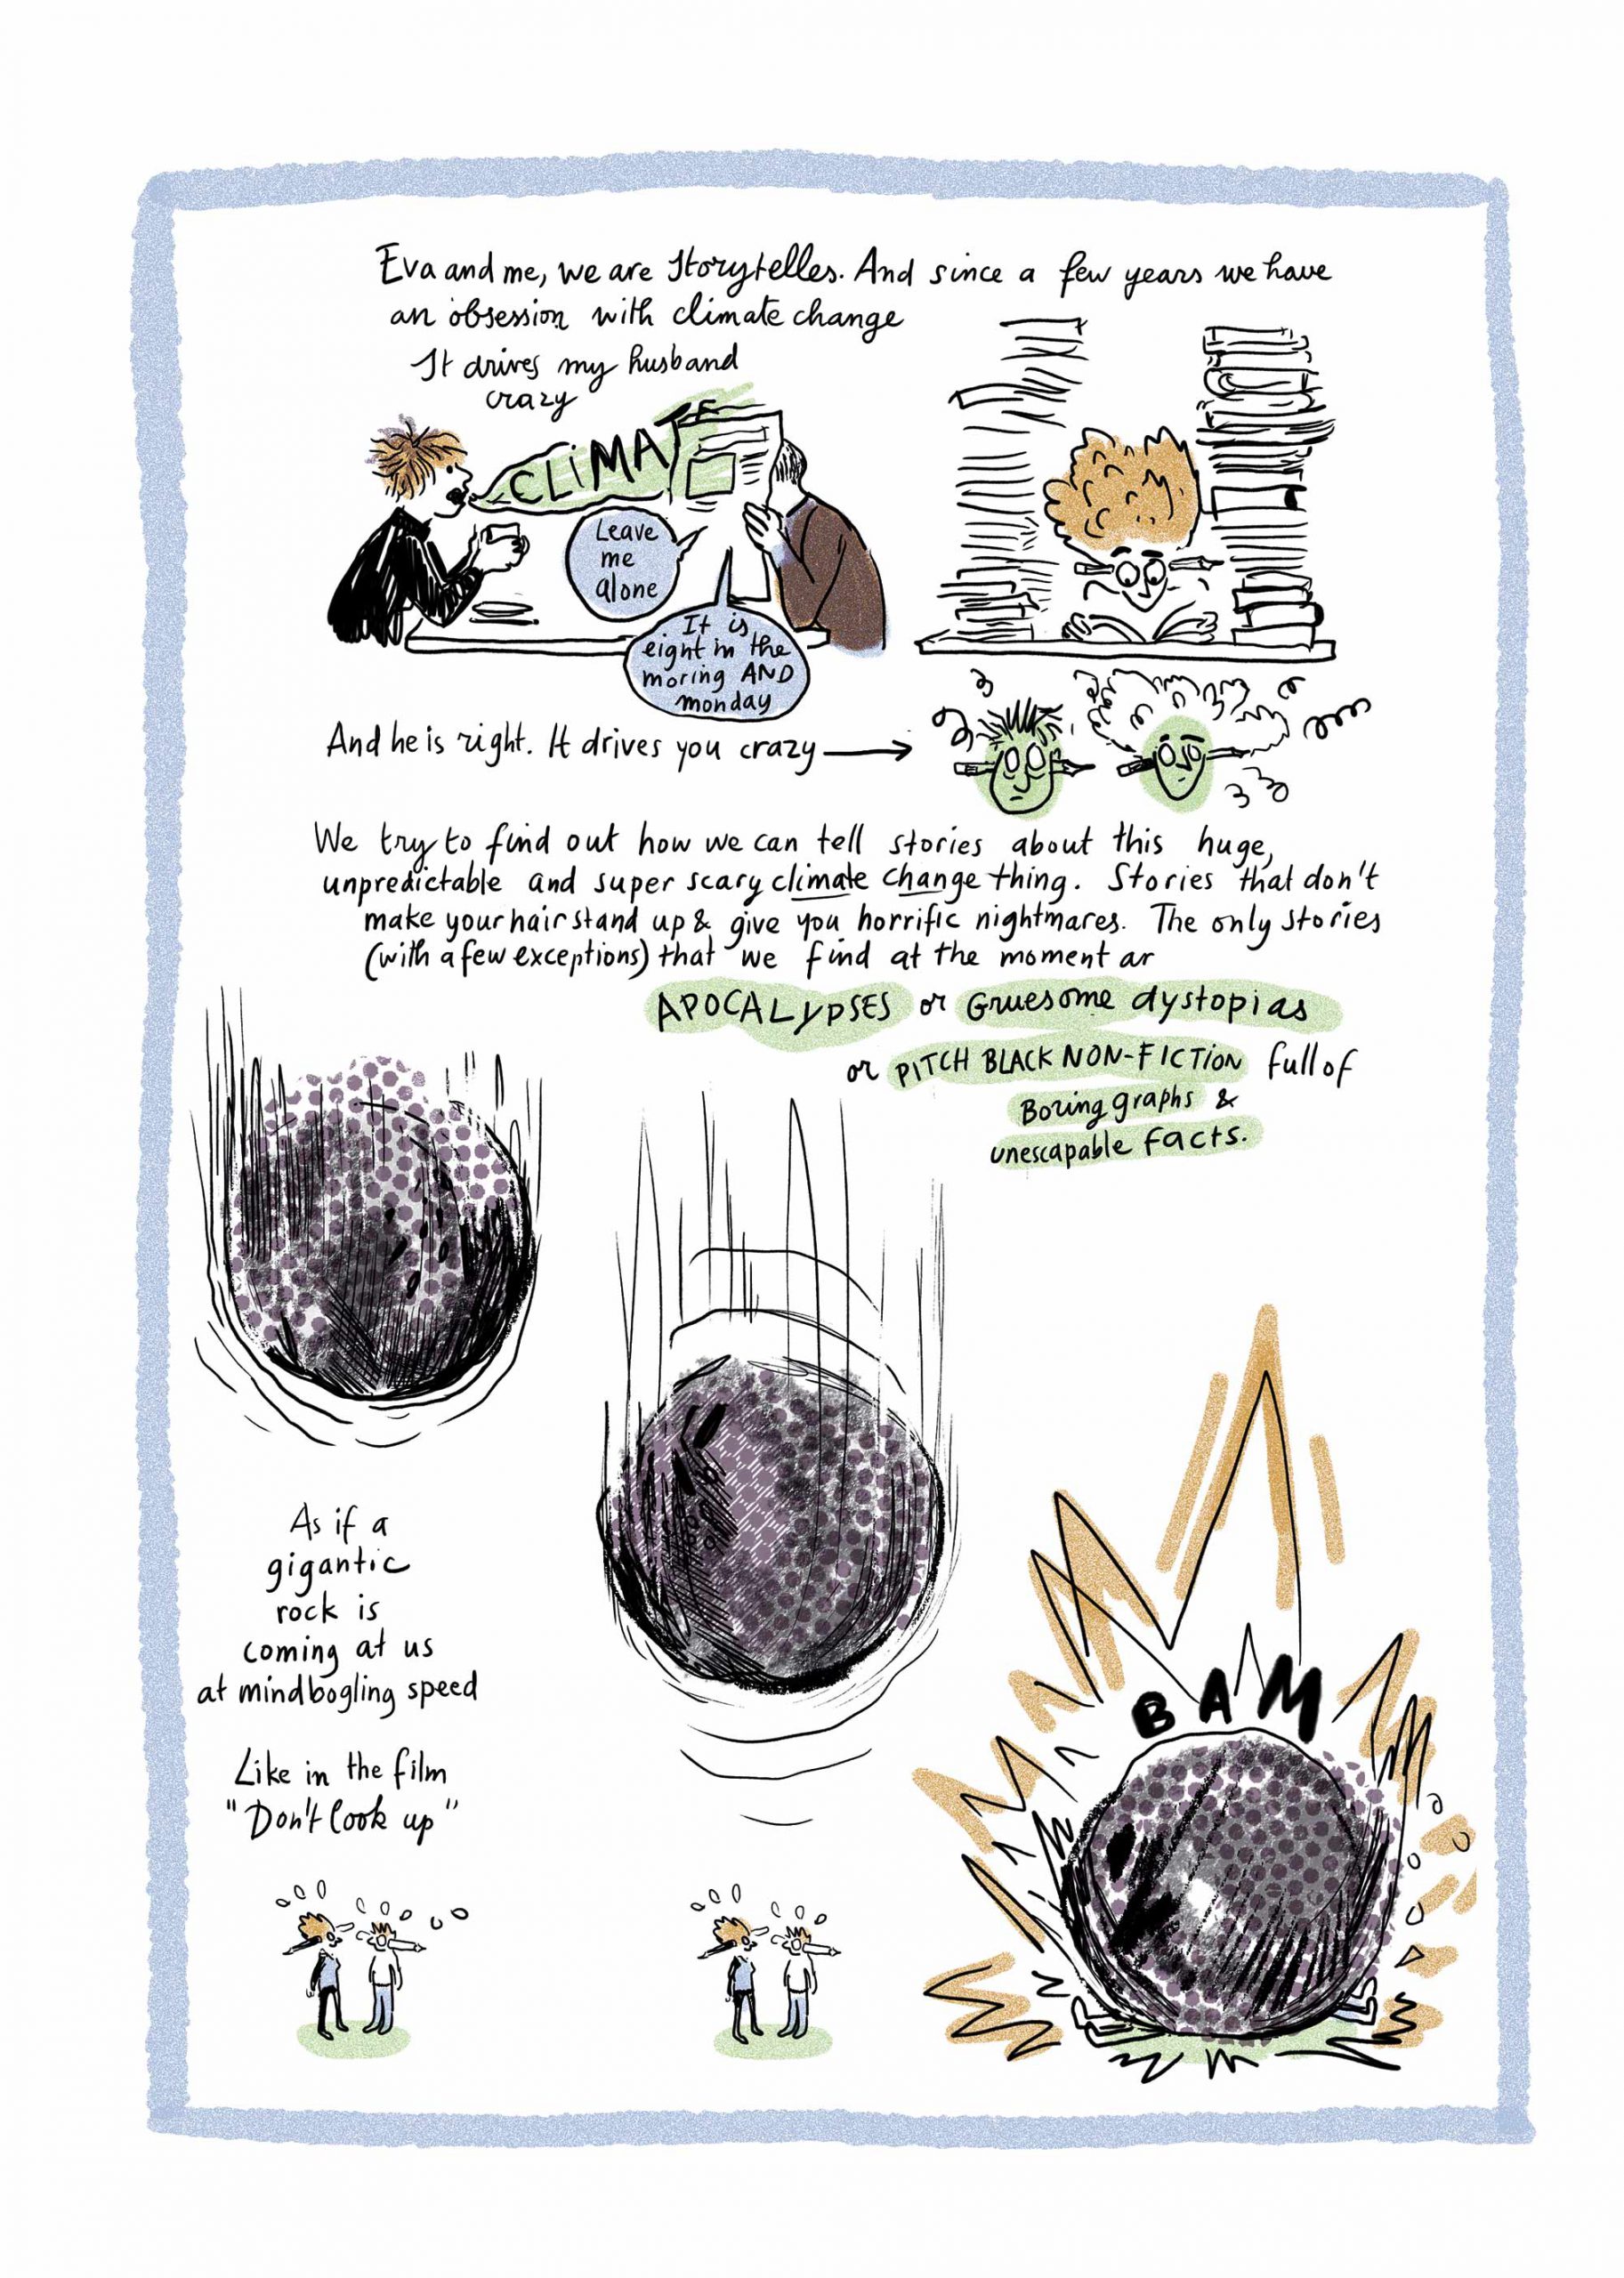 Eva and me, we are storytelles. And since a few years we have
an obsession with climate change
It drives my husband
crazy
CLIMATE
Leave
me
alone
It is
eight in the
moring AND
monday
And he is right. It drives you crazy
We try to find out how we can tell stories about this huge,
unpredictable and super scary climate change thing. Stories that don't
make your hair stand up & give you horrific nightmares. The only stories
(with a few exceptions) that we find at the moment ar
APOCALYPSES or Gruesome dystopias
or PITCH BLACK NON-FICTION full of
Boring graphs &
unescapable facts.
As if a
gigantic
rock is
coming at us
at mindbogling speed
Like in the film
"Don't look up"
BAM